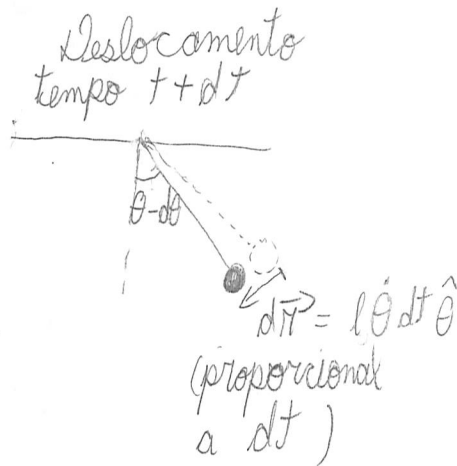 Deslocamento
tempo t+dt
θ-dθ
dr⃗ = lθ̇ dt θ̂
(proporcional
a dt)